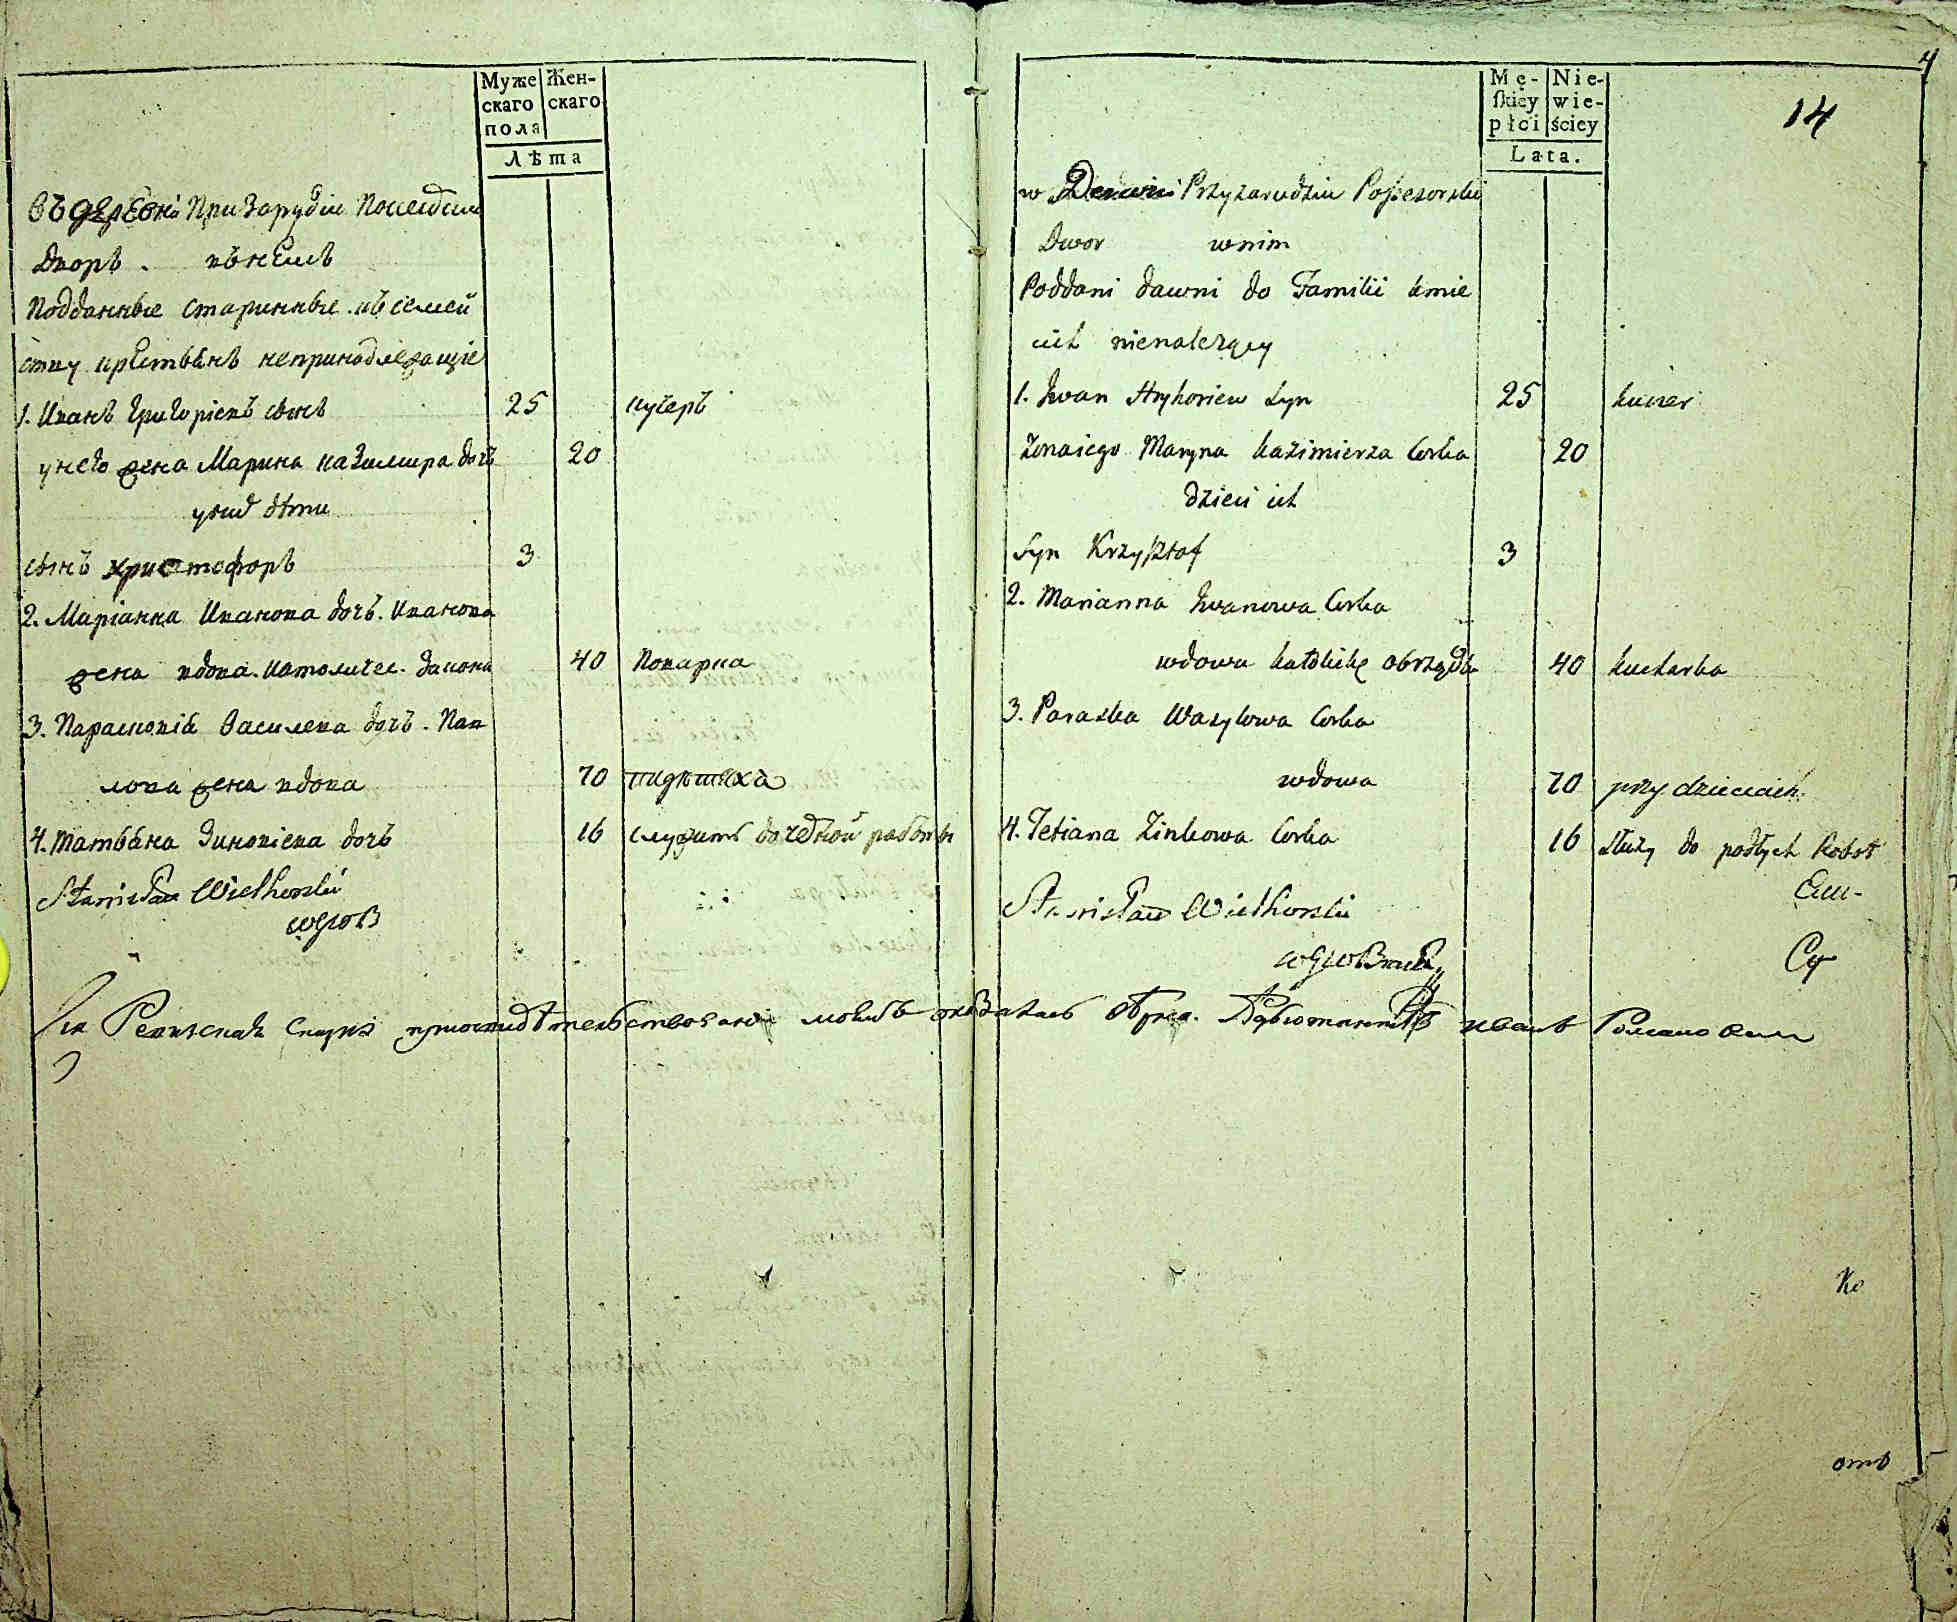 Муже Жен-
скаго скаго
пола
Лѣта
въ деревнѣ При Зарудіи
дворъ. въ немъ
подданные старинные въ семей
ству крестьянъ непринадлежащіе
1. Иванъ Григоріевъ сынъ 25 кучеръ
у него жена Марина Казимира дочь 20
у них дѣти
сынъ Христофоръ 3
2. Маріанна Иванова дочь. Иванова
жена вдова. католичес. закона 40 поварка
3. Парасковія Василева дочь. Пав
лова жена вдова 70
4. Татьяна Зиновіева дочь 16 служитъ работы
Stanisław Wielhorski
WGWB
Mę- Nie-
skiey wie-
płci ściey
Lata.
4
14
w Derewni Przyzarudziu Possesorski
Dwor w nim
Poddani dawni do Familii kmie
cich nienalezący
1. Iwan Hryhoriew Syn 25 kuczer
Zona iego Maryna Kazimierza Corka 20
dzieci ich
Syn Krzysztof 3
2. Marianna Iwanowa Corka
wdowa katolickę obrządku 40 kucharka
3. Paraska Wasylowa Corka
wdowa 70 przy dzieciach.
4. Tetiana Zinkowa Corka 16 służy do podłych Robot
Stanisław Wielhorski
Ревизская Иванъ
Ко
отъ